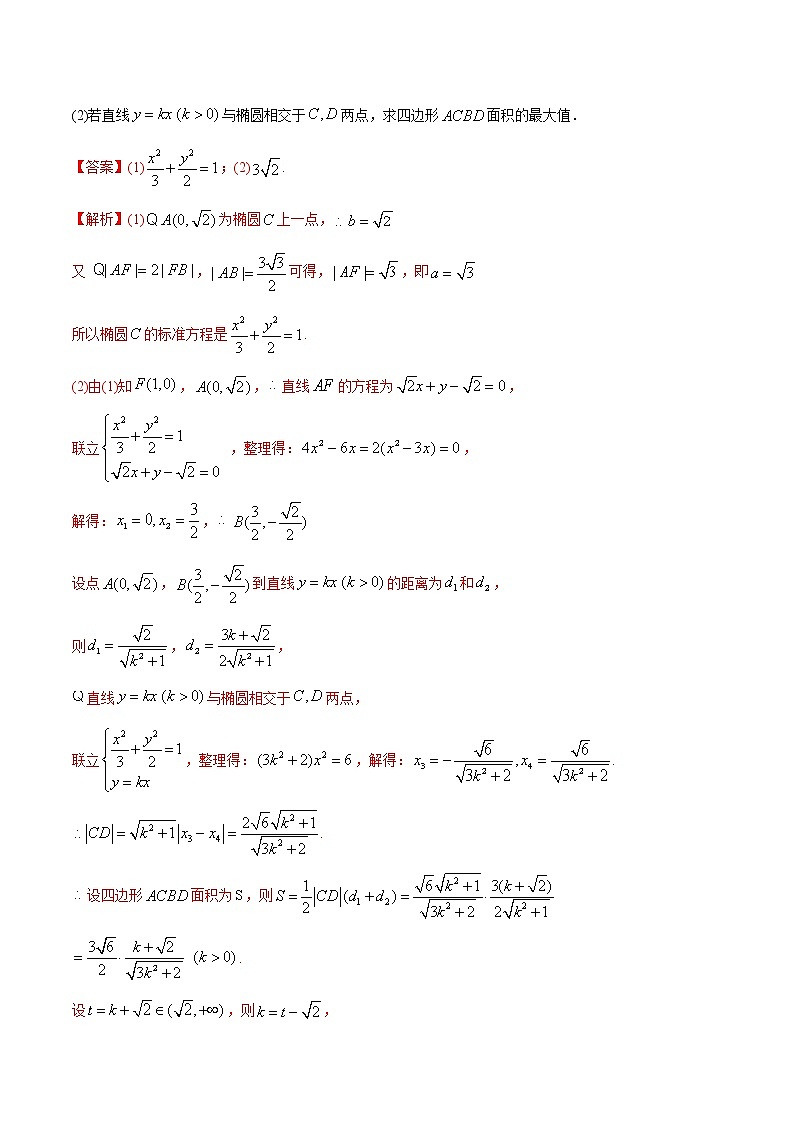 (2)若直线 y = kx (k > 0) 与椭圆相交于 C, D 两点，求四边形 ACBD 面积的最大值．
【答案】(1) x²/3 + y²/2 = 1；(2) 3√2．
【解析】(1) Q A(0, √2) 为椭圆 C 上一点，∴ b = √2
又 Q| AF |= 2 | FB |，| AB |= 3√3/2 可得，| AF |= √3，即 a = √3
所以椭圆 C 的标准方程是 x²/3 + y²/2 = 1．
(2)由(1)知 F(1,0)，A(0, √2)，∴ 直线 AF 的方程为 √2x + y − √2 = 0，
联立 { x²/3 + y²/2 = 1 ; √2x + y − √2 = 0 ，整理得：4x² − 6x = 2(x² − 3x) = 0，
解得：x₁ = 0, x₂ = 3/2，∴ B(3/2, −√2/2)
设点 A(0, √2)，B(3/2, −√2/2) 到直线 y = kx (k > 0) 的距离为 d₁ 和 d₂，
则 d₁ = √2/√(k² + 1)，d₂ = (3k + √2)/(2√(k² + 1))，
Q 直线 y = kx (k > 0) 与椭圆相交于 C, D 两点，
联立 { x²/3 + y²/2 = 1 ; y = kx ，整理得：(3k² + 2)x² = 6，解得：x₃ = −√6/√(3k² + 2), x₄ = √6/√(3k² + 2)．
∴ |CD| = √(k² + 1)|x₃ − x₄| = 2√6√(k² + 1)/√(3k² + 2)．
∴ 设四边形 ACBD 面积为 S，则 S = 1/2|CD|(d₁ + d₂) = √6√(k² + 1)/√(3k² + 2) · 3(k + √2)/(2√(k² + 1))
= 3√6/2 · (k + √2)/√(3k² + 2) (k > 0)．
设 t = k + √2 ∈ (√2, +∞)，则 k = t − √2，